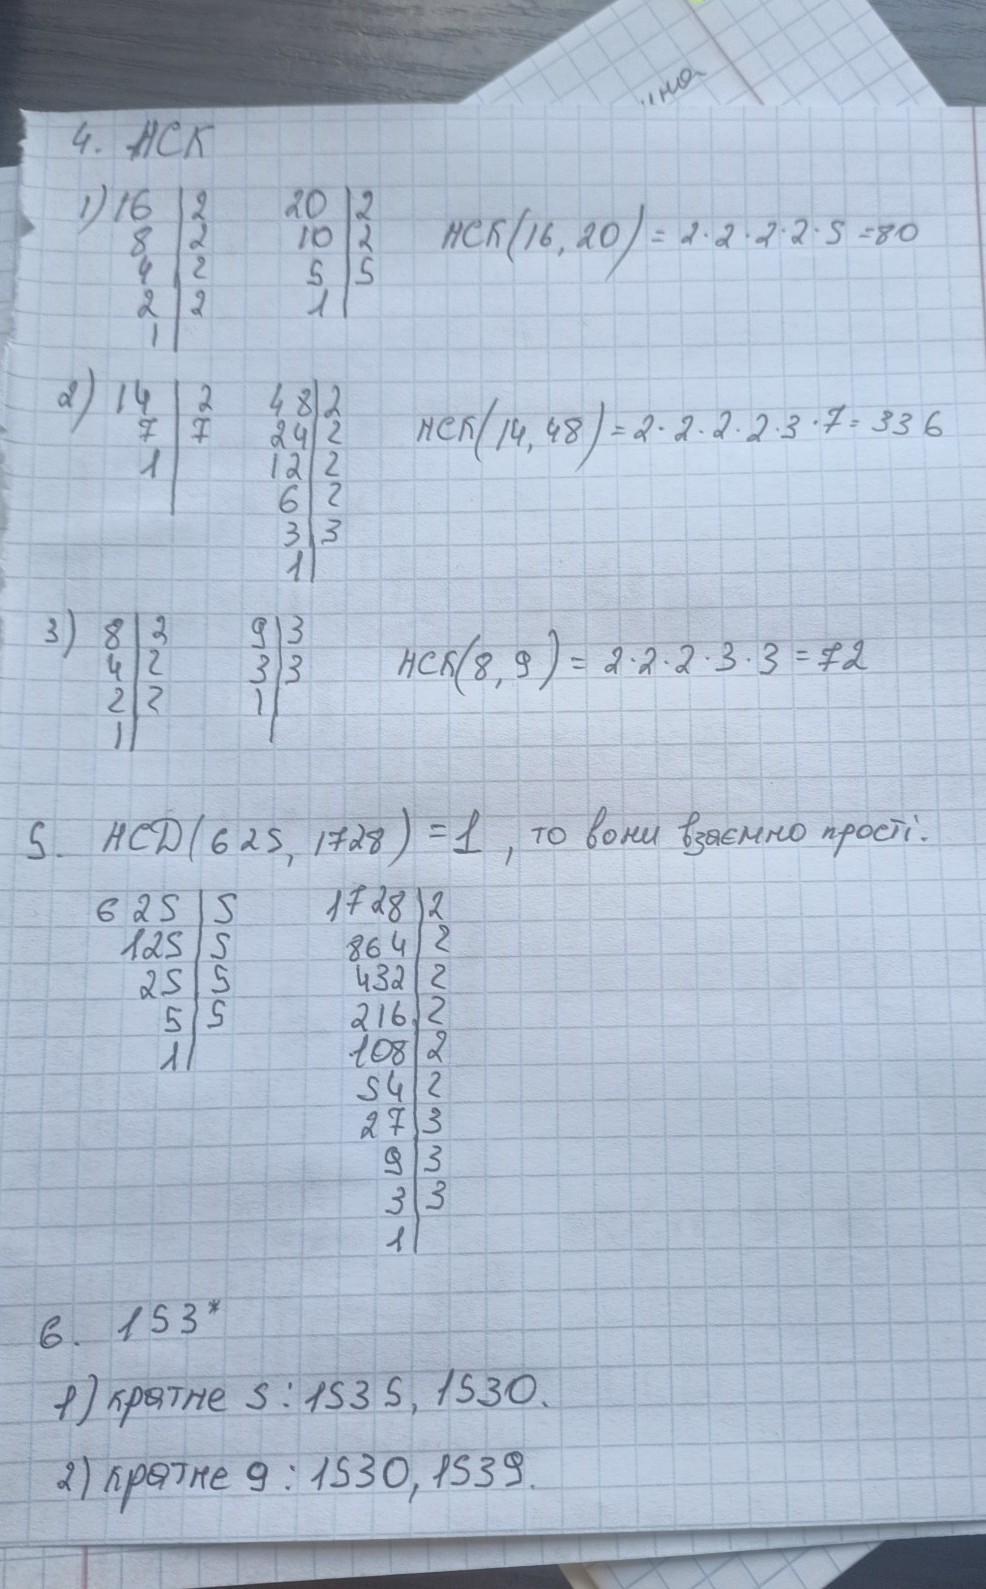 ина
4. НСК
1) 16 | 2    20 | 2    НСК(16, 20) = 2·2·2·2·5 = 80
8 | 2    10 | 2
4 | 2    5 | 5
2 | 2    1 |
1 |
2) 14 | 2    48 | 2    НСК(14, 48) = 2·2·2·2·3·7 = 336
7 | 7    24 | 2
1 |    12 | 2
6 | 2
3 | 3
1 |
3) 8 | 2    9 | 3    НСК(8, 9) = 2·2·2·3·3 = 72
4 | 2    3 | 3
2 | 2    1 |
1 |
5. НСD(625, 1728) = 1, то вони взаємно прості.
625 | 5    1728 | 2
125 | 5    864 | 2
25 | 5    432 | 2
5 | 5    216 | 2
1 |    108 | 2
54 | 2
27 | 3
9 | 3
3 | 3
1 |
6. 153*
1) кратне 5: 1535, 1530.
2) кратне 9: 1530, 1539.